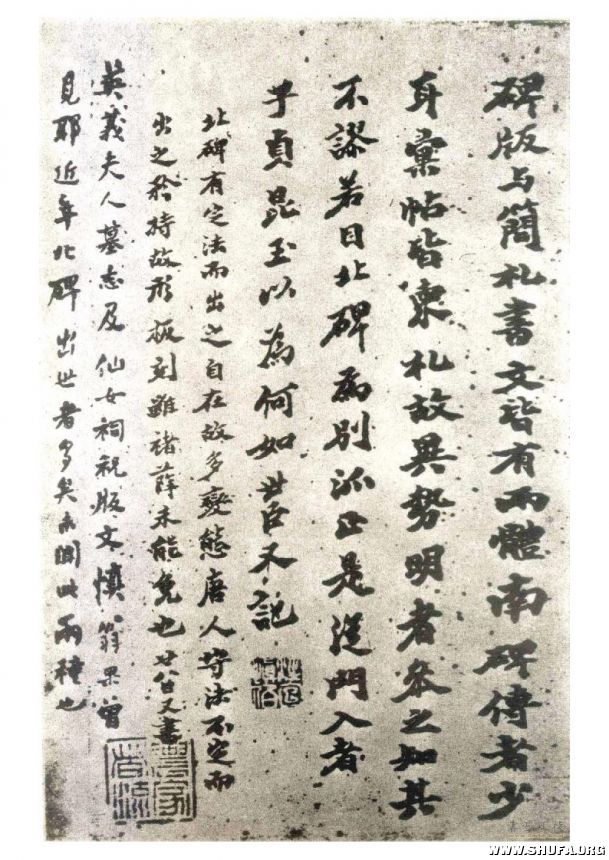 碑版与簡札書文皆有兩體南碑傳者少
耳彙帖皆柬札故異勢明者參之知其
不謬若目北碑為別派正是從門入者
子貞昆玉以為何如世臣又記
北碑有定法而出之自在故多變態唐人守法不定而
出之矜持故形板刻雖褚薛未能免也廿八日又書
英義夫人墓志及仙女祠祝版文慎翁果曾
見耶近年北碑出世者多矣未聞此兩種也
WWW.SHUFA.ORG